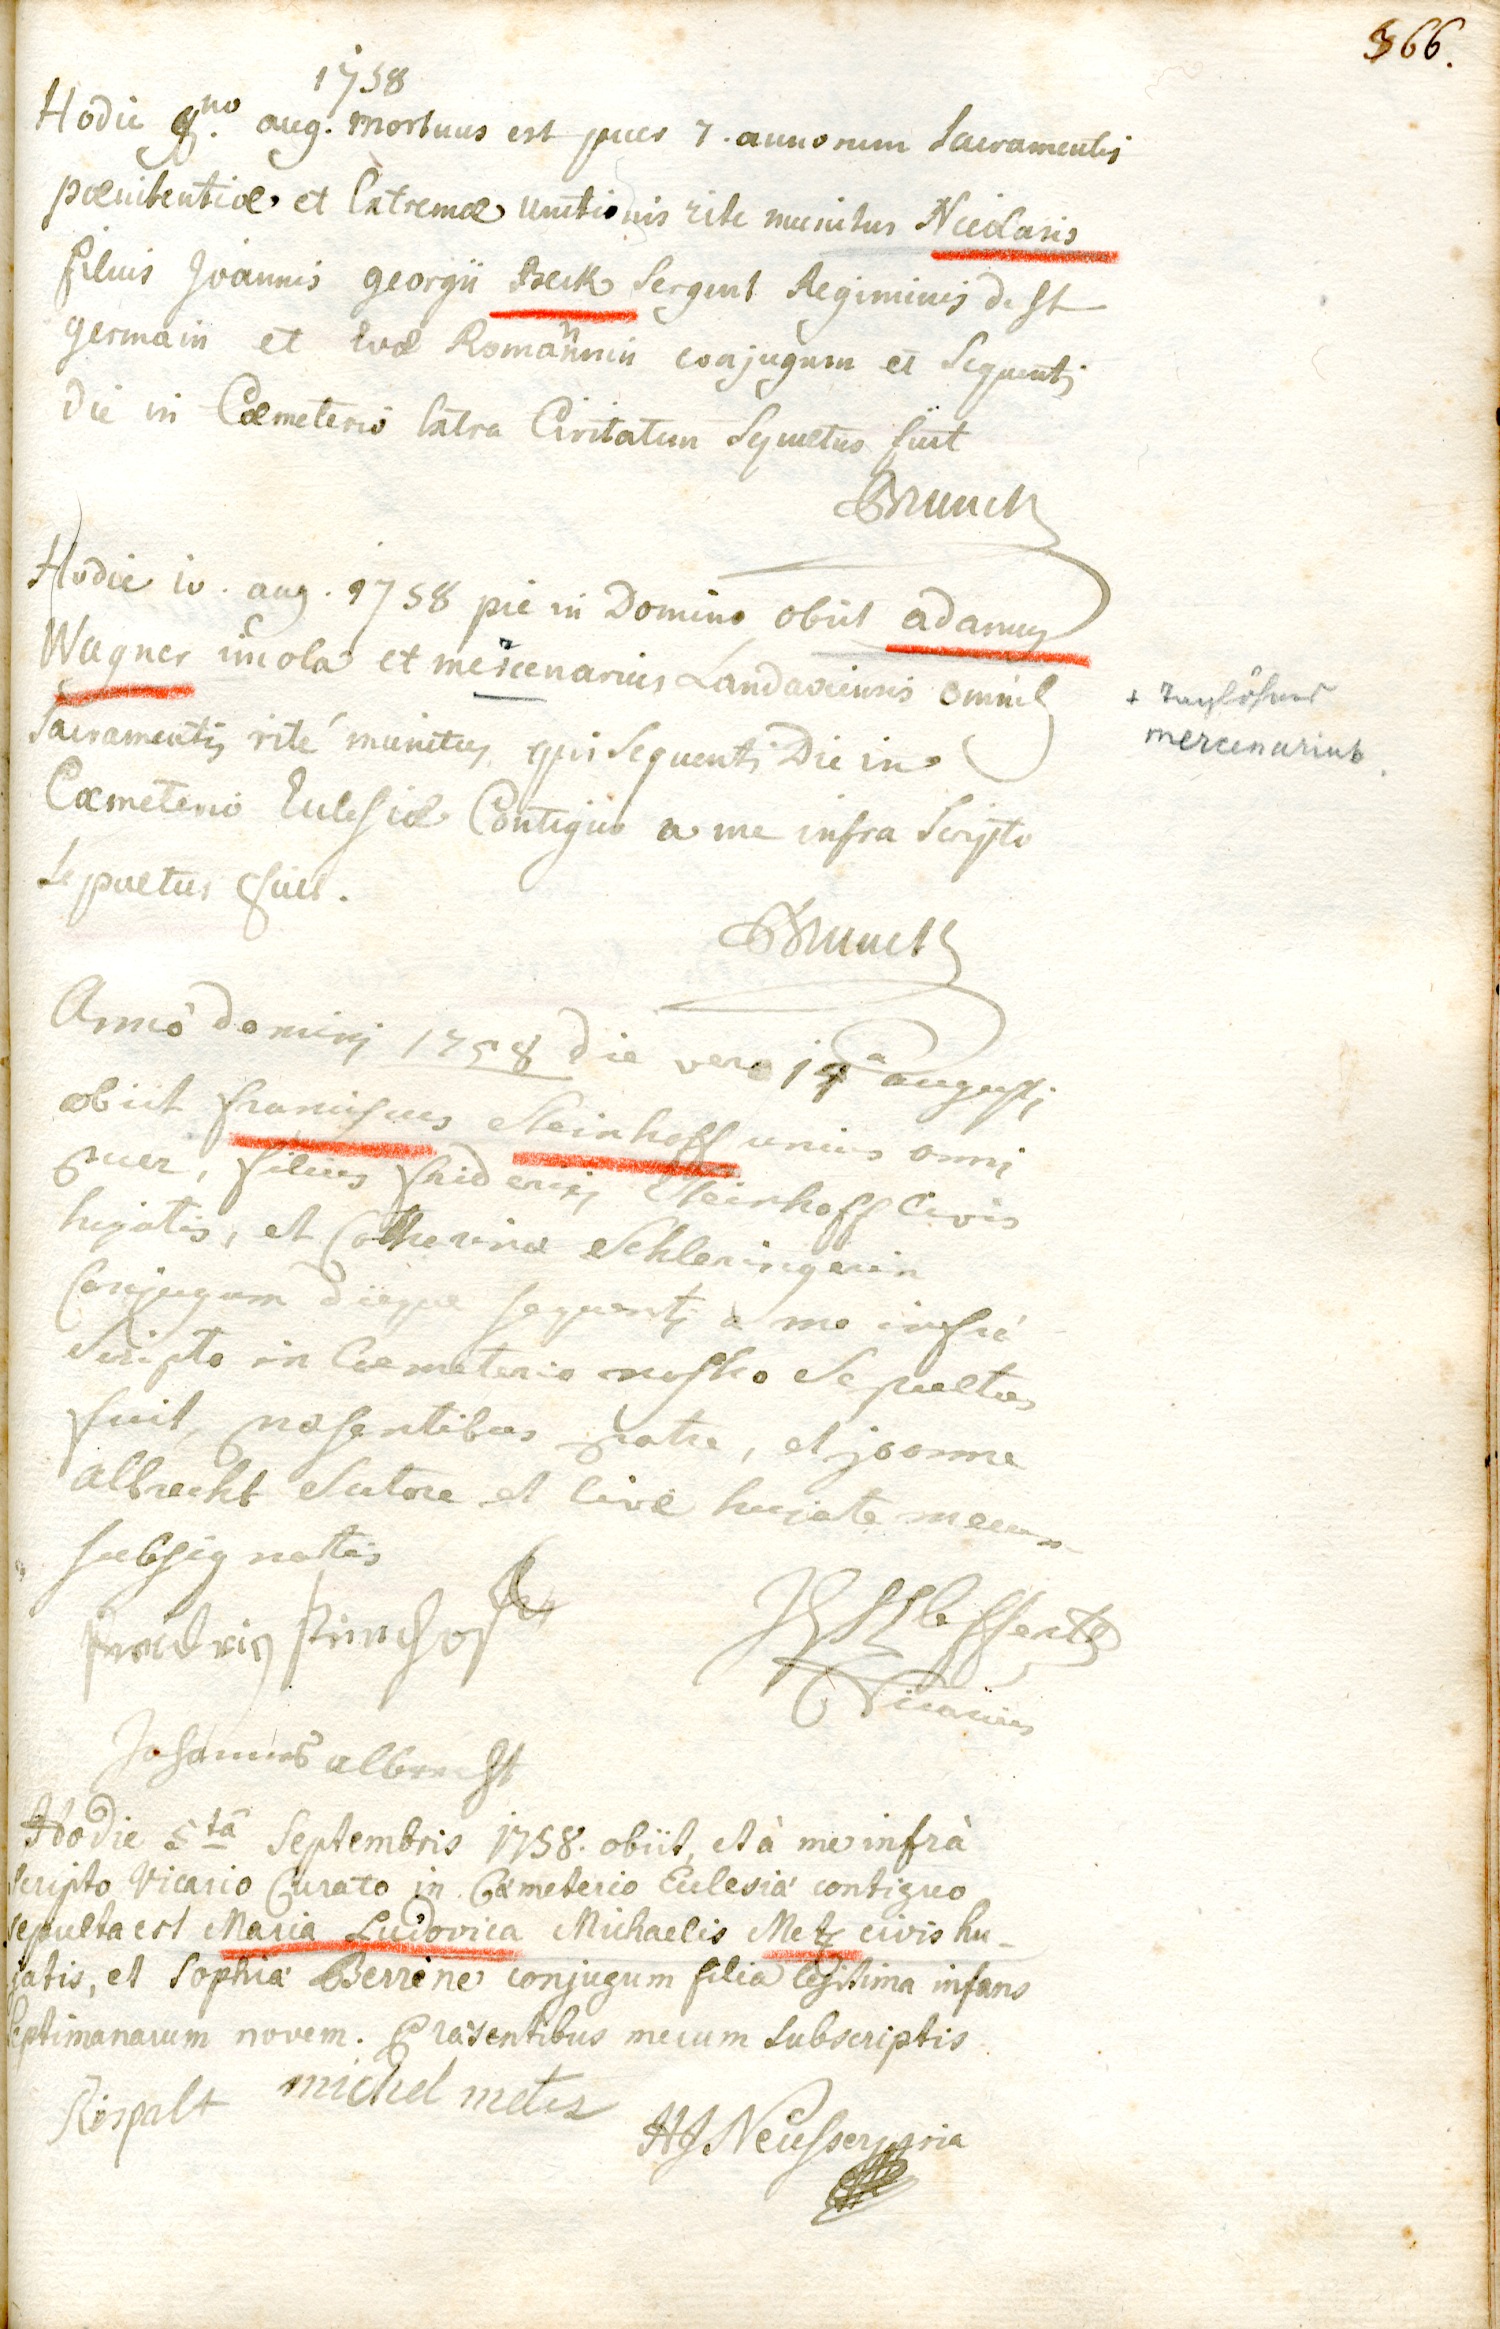 366.
1758
Hodie 8.no aug. mortuus est puer 7. annorum Sacramentis
pœnitentiæ et Extremæ unctionis rite munitus Nicolaus
filius Joannis georgii Beck Sergent Regiminis de St
germain et Evæ Romannin conjugum et Sequenti
die in Cœmeterio Extra Civitatem Sepultus fuit
Brunck
Hodie 10. aug. 1758 pie in Domino obiit adamus
Wagner incola et mercenarius Landaviensis omnib
Sacramentis rité munitus, qui Sequenti Die in
+
mercenarius.
Cœmeterio Eclesiæ Contiguo a me infra Scripto
Sepultus fuit.
Brunck
Anno domini 1758 die vero 14a augusti
obiit franciscus Steinhoff unius anni
puer, filius friderici Steinhoff Civis
hujatis, et Catherinæ Schleringerin
Conjugum dieque sequenti a me infrá
Scripto in Cœmeterio nostro Sepultus
fuit, præsentibus patre, et joanne
albrecht Sutore et Cive hujate mecum
subsignatis
Vicarius
Johannes albrecht
Hodie 5tâ Septembris 1758. obiit, et à me infrà
scripto Vicario Curato in Cæmeterio Eclesiæ contiguo
sepulta est Maria Ludovica Michaelis Metz civis hu-
jatis, et Sophiæ Berrene conjugum filia legitima infans
septimanarum novem. Præsentibus mecum subscriptis
Rispalt michel metz